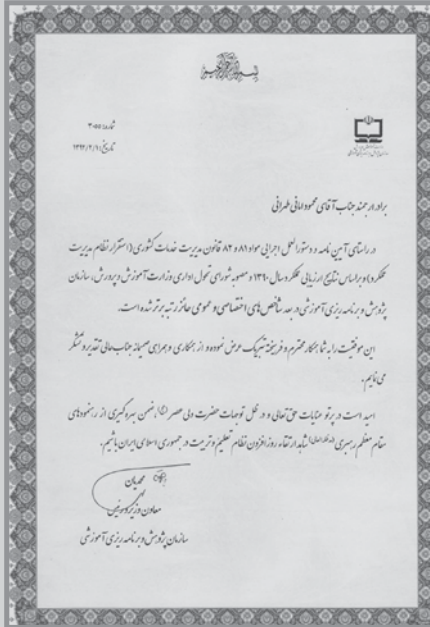 بسم الله الرحمن الرحیم
شماره:
تاریخ:
برادر ارجمند جناب آقای محمود امانی طهرانی
در راستای آیین نامه و دستورالعمل اجرایی مواد ۸۱ و ۸۲ قانون مدیریت خدمات کشوری (استقرار نظام مدیریت
عملکرد) و براساس نتایج ارزیابی عملکرد سال ۱۳۹۰ و مصوبه شورای تحول اداری وزارت آموزش و پرورش، سازمان
پژوهش و برنامه ریزی آموزشی در بعد شاخص های اختصاصی و عمومی حائز رتبه برتر شده است.
این موفقیت را به شما همکار محترم و فرهیخته تبریک عرض نموده و از همکاری و همراهی صمیمانه جناب عالی تقدیر و تشکر
می نمایم.
امید است در پرتو عنایات حق تعالی و در ظل توجهات حضرت ولی عصر (عج)، ضمن بهره گیری از رهنمودهای
مقام معظم رهبری شاهد ارتقاء روزافزون نظام تعلیم و تربیت در جمهوری اسلامی ایران باشیم.
محمدیان
معاون وزیر و رئیس
سازمان پژوهش و برنامه ریزی آموزشی